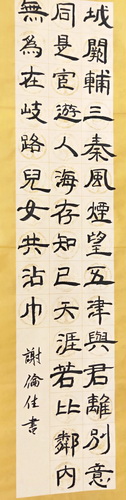 城闕輔三秦風煙望五津與君離別意
同是宦遊人海存知己天涯若比鄰內
無為在岐路兒女共沾巾
謝倫佳書